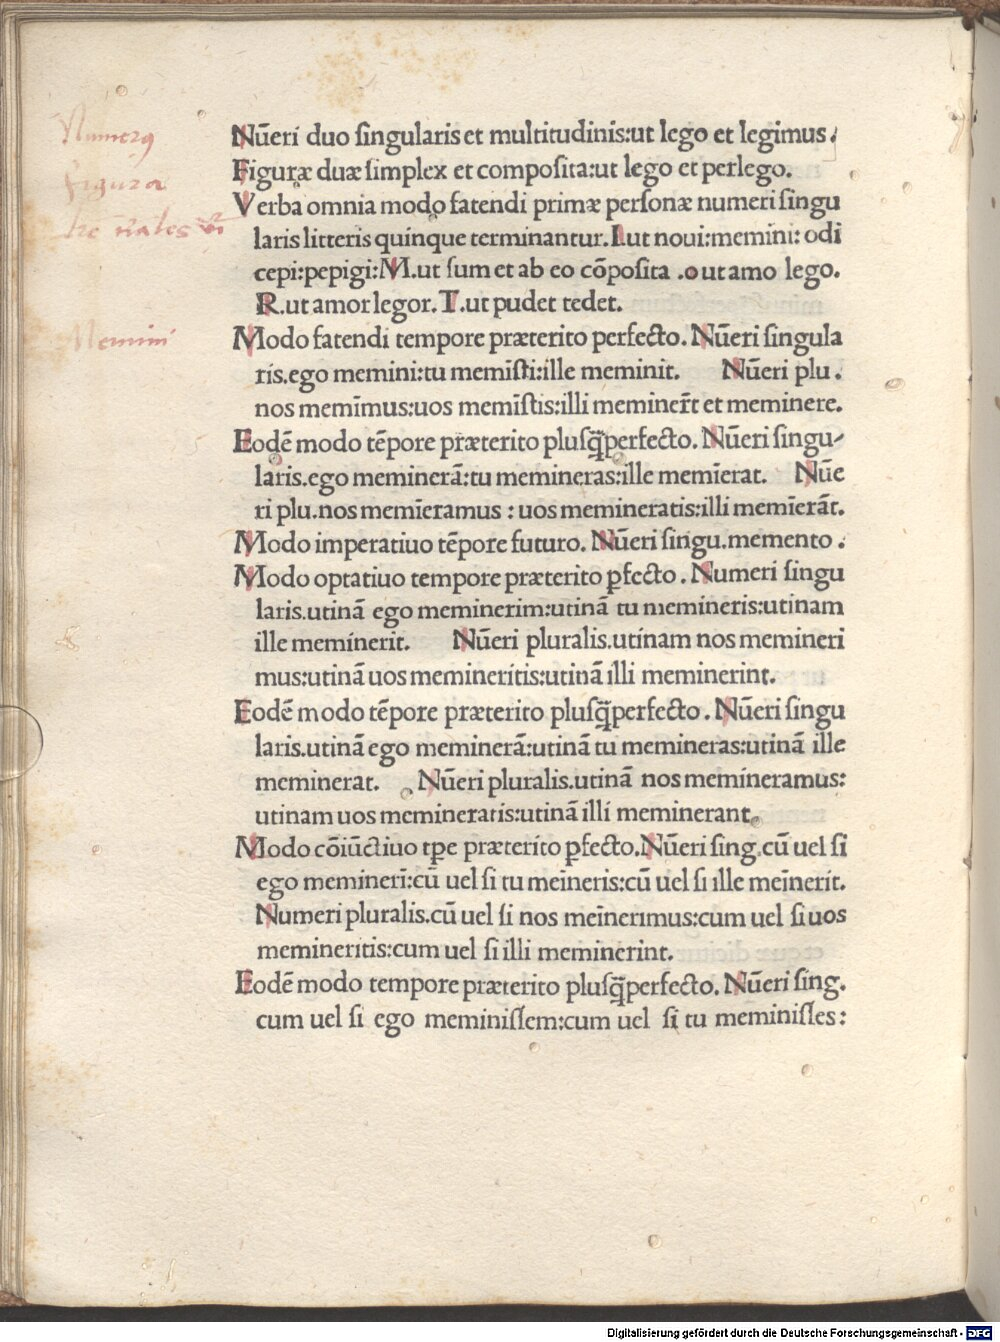 Numerus
Figura
Memini
Nūeri duo ſingularis et multitudinis:ut lego et legimus.
Figuræ duæ ſimplex et compoſita:ut lego et perlego.
Verba omnia modo fatendi primæ perſonæ numeri ſingu
laris litteris quinque terminantur.I.ut noui:memini: odi
cepi:pepigi:M.ut ſum et ab eo cōpoſita .o ut amo lego.
R.ut amor legor. T.ut pudet tedet.
Modo fatendi tempore præterito perfecto. Nūeri ſingula
ris.ego memini:tu memiſti:ille meminit. Nūeri plu.
nos memīmus:uos memīſtis:illi meminer̄t et meminere.
Eodē modo tēpore præterito pluſq̄perfecto. Nūeri ſingu-
laris.ego meminerā:tu memineras:ille memīerat. Nūe
ri plu.nos memīeramus : uos memineratis:illi memīerāt.
Modo imperatiuo tēpore futuro. Nūeri ſingu.memento .
Modo optatiuo tempore præterito ꝑfecto . Numeri ſingu
laris.utinā ego meminerim:utinā tu memineris:utinam
ille meminerit. Nūeri pluralis.utinam nos memineri
mus:utinā uos memineritis:utinā illi meminerint.
Eodē modo tēpore præterito pluſq̄perfecto . Nūeri ſingu
laris.utinā ego meminerā:utinā tu memineras:utinā ille
meminerat. Nūeri pluralis.utinā nos memineramus:
utinam uos memineratis:utinā illi meminerant.
Modo cōiūctiuo tꝑe præterito ꝑfecto.Nūeri ſing.cū uel ſi
ego meminerī:cū uel ſi tu meīneris:cū uel ſi ille meīnerit.
Numeri pluralis.cū uel ſi nos meīnerimus:cum uel ſi uos
memineritis:cum uel ſi illi meminerint.
Eodē modo tempore præterito pluſq̄perfecto. Nūeri ſing.
cum uel ſi ego meminiſſem:cum uel ſi tu meminiſſes:
Digitalisierung gefördert durch die Deutsche Forschungsgemeinschaft - DFG